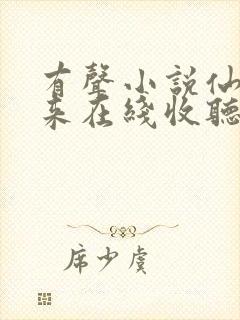 有聲小說仙
來在綫收聽
席少虞